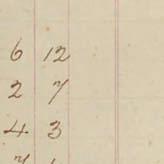 6 12
2 7
4 3